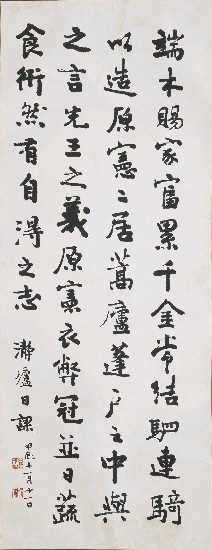 端木賜家富累千金常結駟連騎
以造原憲〻居蒿廬蓬戶之中與
之言先王之義原憲衣弊冠並日蔬
食衎然有自得之志
瀞廬日課
十一月十一日